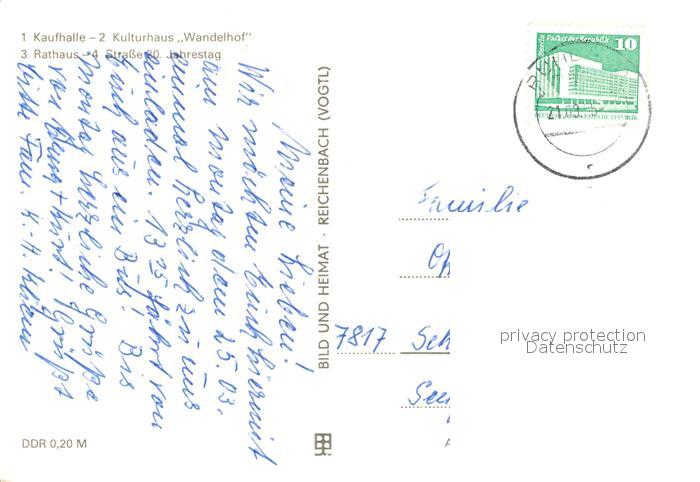 1 Kaufhalle – 2 Kulturhaus „Wandelhof"
3 Rathaus – 4 Straße 30. Jahrestag
Meine Lieben!
Wir möchten Euch hiermit
am Montag dem 25.03.
einmal herzlich zu uns
einladen. 13 25 fährt von
aus ein Bus! Bis
Montag herzliche Grüße
von
Eure Fam.
DDR 0,20 M
BILD UND HEIMAT · REICHENBACH (VOGTL)
Berlin Palast der Republik
10
DEUTSCHE DEMOKRATISCHE REPUBLIK
21.03
Familie
7817 Sch
privacy protection
Datenschutz